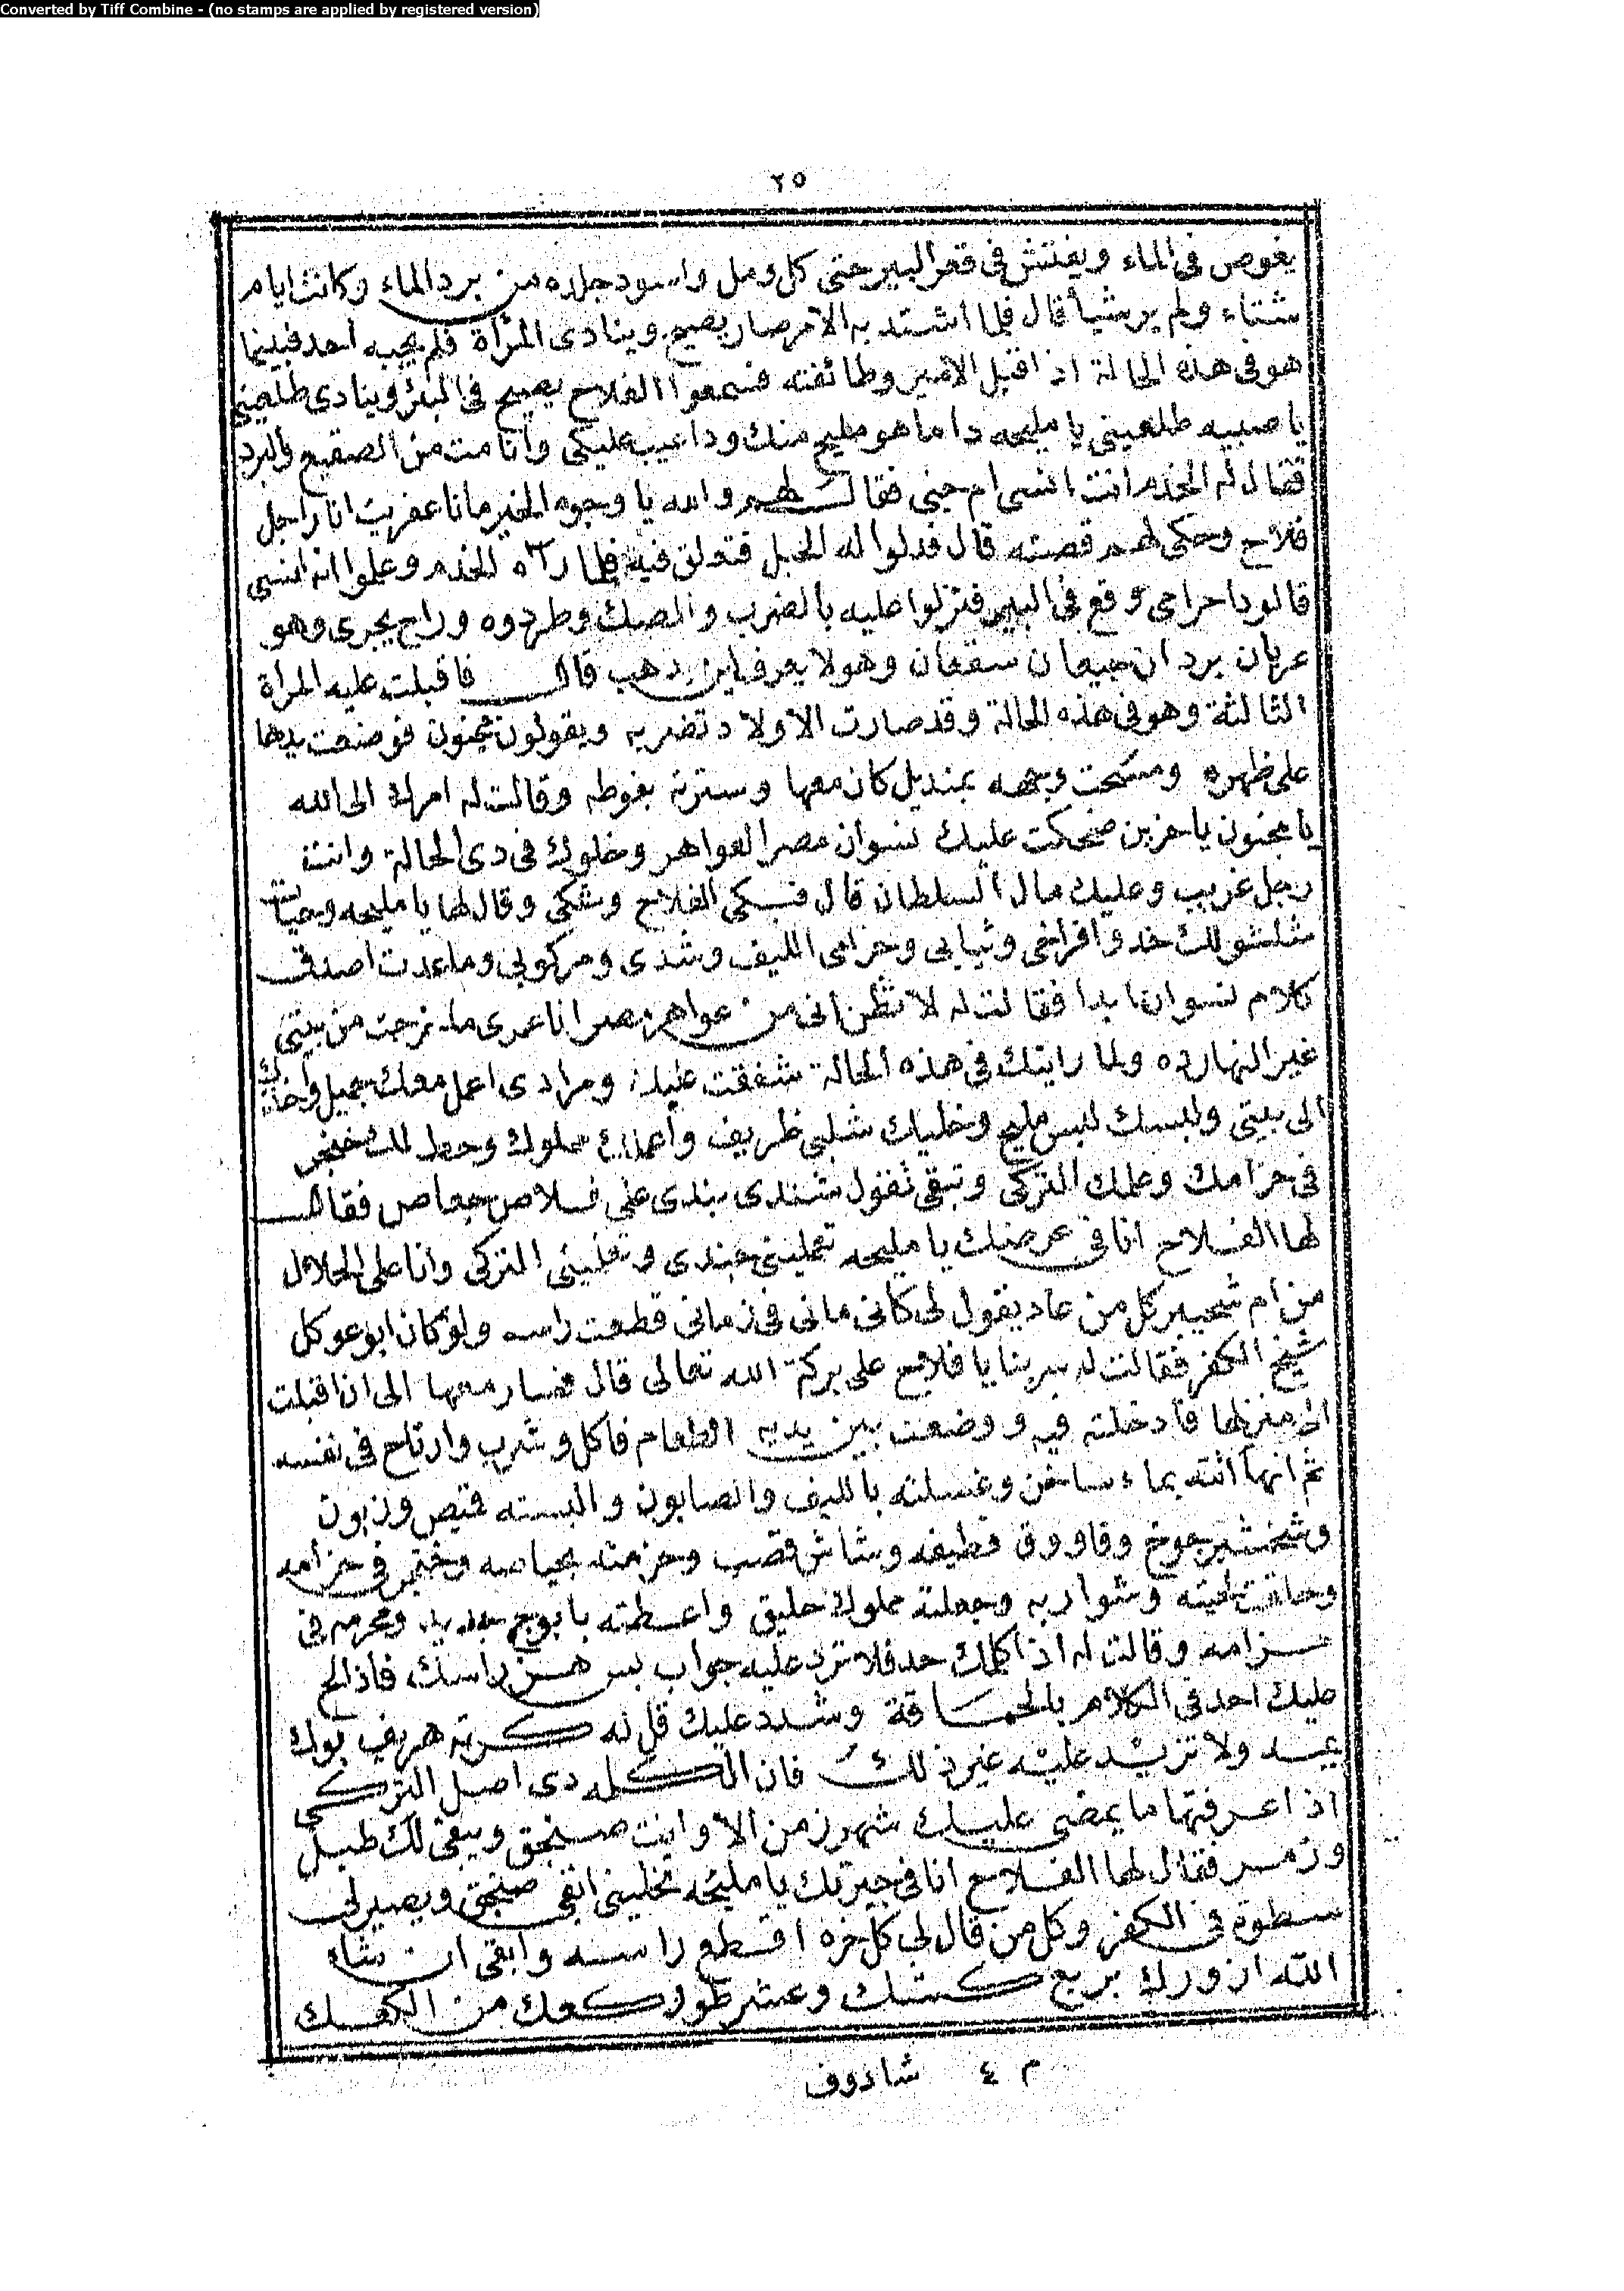 Converted by Tiff Combine - (no stamps are applied by registered version)
٢٥
يغوص فى الماء ويفتش فى قعر البير حتى كل ومل واسود جلده من برد الماء وكانت ايام
شتاء ولم ير شيأ قال فلما اشتد به الامر صار يصيح وينادى المرأة فلم يجبه احد فبينما
هو فى هذه الحالة اذ اقبل الامير وطائفته فسمعوا الفلاح يصيح فى البئر وينادى طلعينى
يا صبيه طلعينى يا مليحه دا ما هو مليح منك ودا عيب عليكى وأنا مت من الصقيع والبرد
فقال له الخدم انت انسى ام جنى فقال لهم والله يا وجوه الخير ما نا عفريت انا راجل
فلاح وحكى لهم قصته قال فدلوا له الحبل فتعلق فيه فلما رآه الخدم وعلموا انه انسى
قالو دا حرامى وقع فى البير فنزلوا عليه بالضرب والصك وطردوه وراح يجرى وهو
عريان بردان جيعان سقعان وهو لا يعرف اين يذهب قال فاقبلت عليه المراة
الثالثة وهو فى هذه الحالة وقد صارت الاولاد تضربه ويقولون مجنون فوضعت يدها
على ظهره ومسحت وجهه بمنديل كان معها وسترته بفوطه وقالت له امرك الى الله
يا مجنون يا حزين ضحكت عليك نسوان مصر العواهر وخلوك فى دى الحالة وانت
رجل غريب وعليك مال السلطان قال فبكى الفلاح وشكى وقال لها يا مليحه وحيات
شلشولك خدو افراخى وثيابى وحزامى الليف وشدى ومركوبى وما عدت اصدق
كلام نسوان ابدا فقالت له لا تظن أنى من عواهر مصر انا عمرى ما خرجت من بيتى
غير النهارده ولما رايتك فى هذه الحالة شفقت عليك ومرادى اعمل معك جميل وآخدك
الى بيتى ولبسك لبس مليح وخليك شلبى ظريف وأعملك مملوك وحط لك خنجر
فى حزامك وعلمك التركى وتبقى تقول شندى بندى على فلاص جعاص فقال
لها الفلاح انا فى عرضك يا مليحه تعملينى جندى وتعلمينى التركى وانا على الحلال
من ام شحيبر كل من عاد يقول لى كانى مانى فى زمانى قطعت راسه ولو كان ابو عوكل
شيخ الكفر فقالت له سر بنا يا فلاح على بركة الله تعالى قال فسار معها الى ان اقبلت
الى منزلها فادخلته فيه ووضعت بين يديه الطعام فاكل وشرب وارتاح فى نفسه
ثم انها أتته بماء ساخن وغسلته بالليف والصابون والبسته قميص وزبون
وشخشير جوخ وقاووق قطيفه وشاش قصب وحزمته بحياصه وخنجر فى حزامه
وحلقت لحيته وشواربه وجعلته مملوك حليق واعطته بابوج جديد ومحرمه فى
حزامه وقالت له اذا كلمك حد فلا ترد عليه جواب بس هز براسك فاذا لح
عليك احد فى الكلام بالحماقة وشدد عليك قل له كرته هريف بوك
يمه ولا تزيد عليه غير ذلك فان الكلمه دى اصل التركى
اذا عرفتها ما يمضى عليك شهر زمن الا وانت صنجق ويبقى لك طبل
وزمر فقال لها الفلاح انا فى جيرتك يا مليحه تخلينى ابقى صنجق ويصير لى
سطوه فى الكفر وكل من قال لى كل خره اقطع راسه وابقى ان شاء
الله ازورك بربع كشك وعشر طور كعك من الكعك
م ٤ شادوف